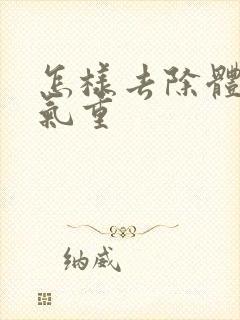 怎樣去除體
氣重
纳威